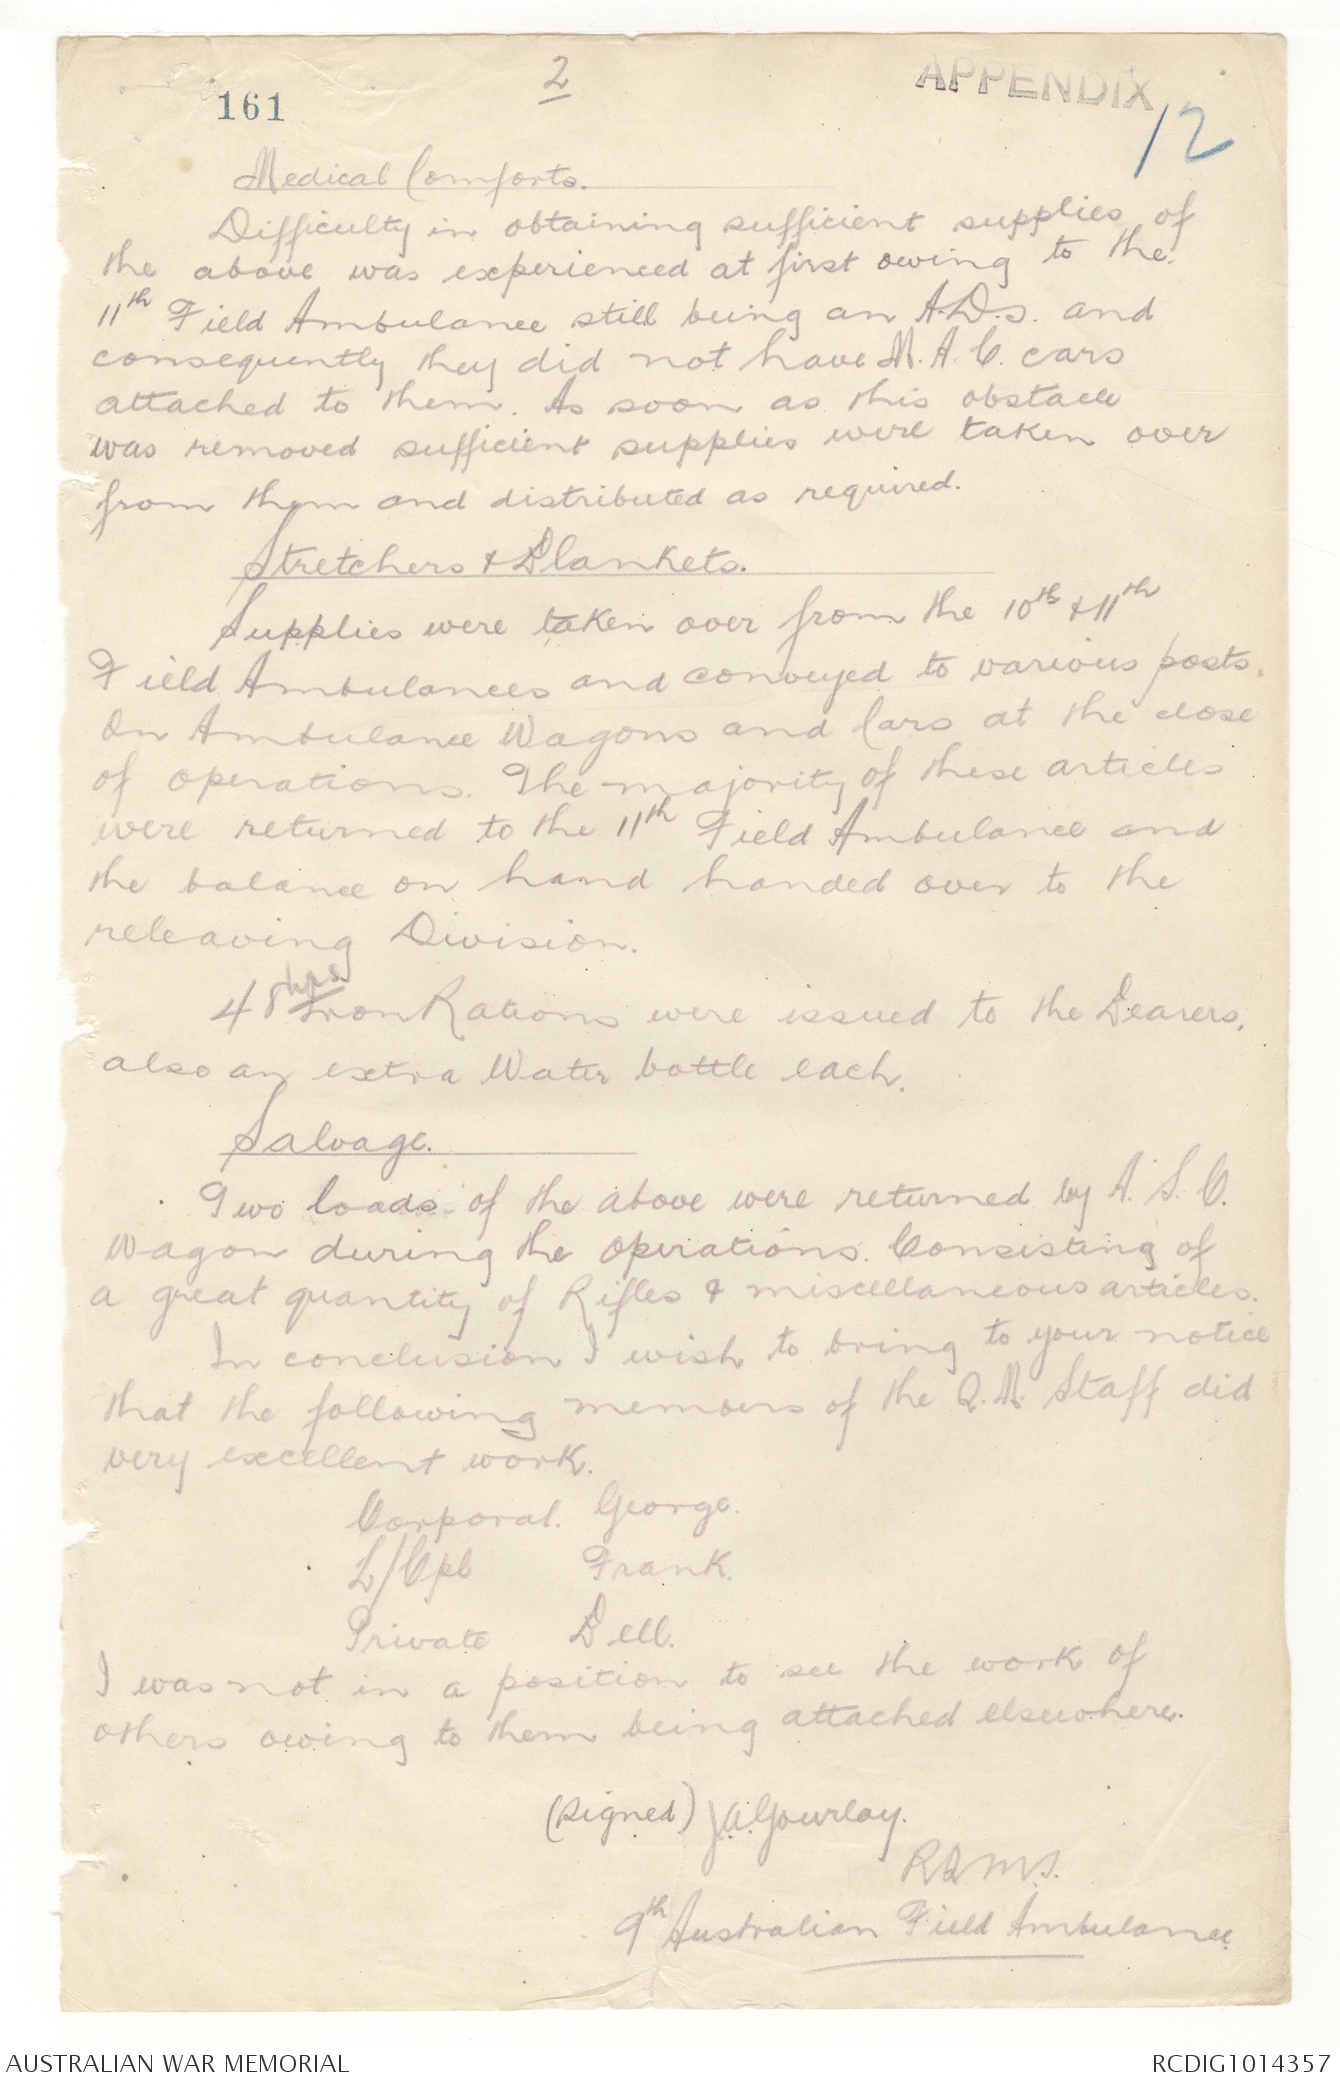 2
161
APPENDIX
12
Medical Comforts.
Difficulty in obtaining sufficient supplies of
the above was experienced at first owing to the
11th Field Ambulance still being an A.D.S. and
consequently they did not have M.A.C. cars
attached to them. As soon as this obstacle
was removed sufficient supplies were taken over
from them and distributed as required.
Stretchers & Blankets.
Supplies were taken over from the 10th & 11th
Field Ambulances and conveyed to various posts.
On Ambulance Wagons and Cars at the close
of operations. The majority of these articles
were returned to the 11th Field Ambulance and
the balance on hand handed over to the
releaving Division.
48 hrs Iron Rations were issued to the Bearers,
also an extra Water bottle each.
Salvage.
Two loads of the above were returned by A.S.C.
Wagon during the operations. Consisting of
a great quantity of Rifles & miscellaneous articles.
In conclusion I wish to bring to your notice
that the following members of the Q.M. Staff did
very excellent work.
Corporal. George.
L/Cpl Frank.
Private Bell.
I was not in a position to see the work of
others owing to them being attached elsewhere.
(signed) J.A. Gourlay.
R.Q.M.S.
9th Australian Field Ambulance
AUSTRALIAN WAR MEMORIAL
RCDIG1014357